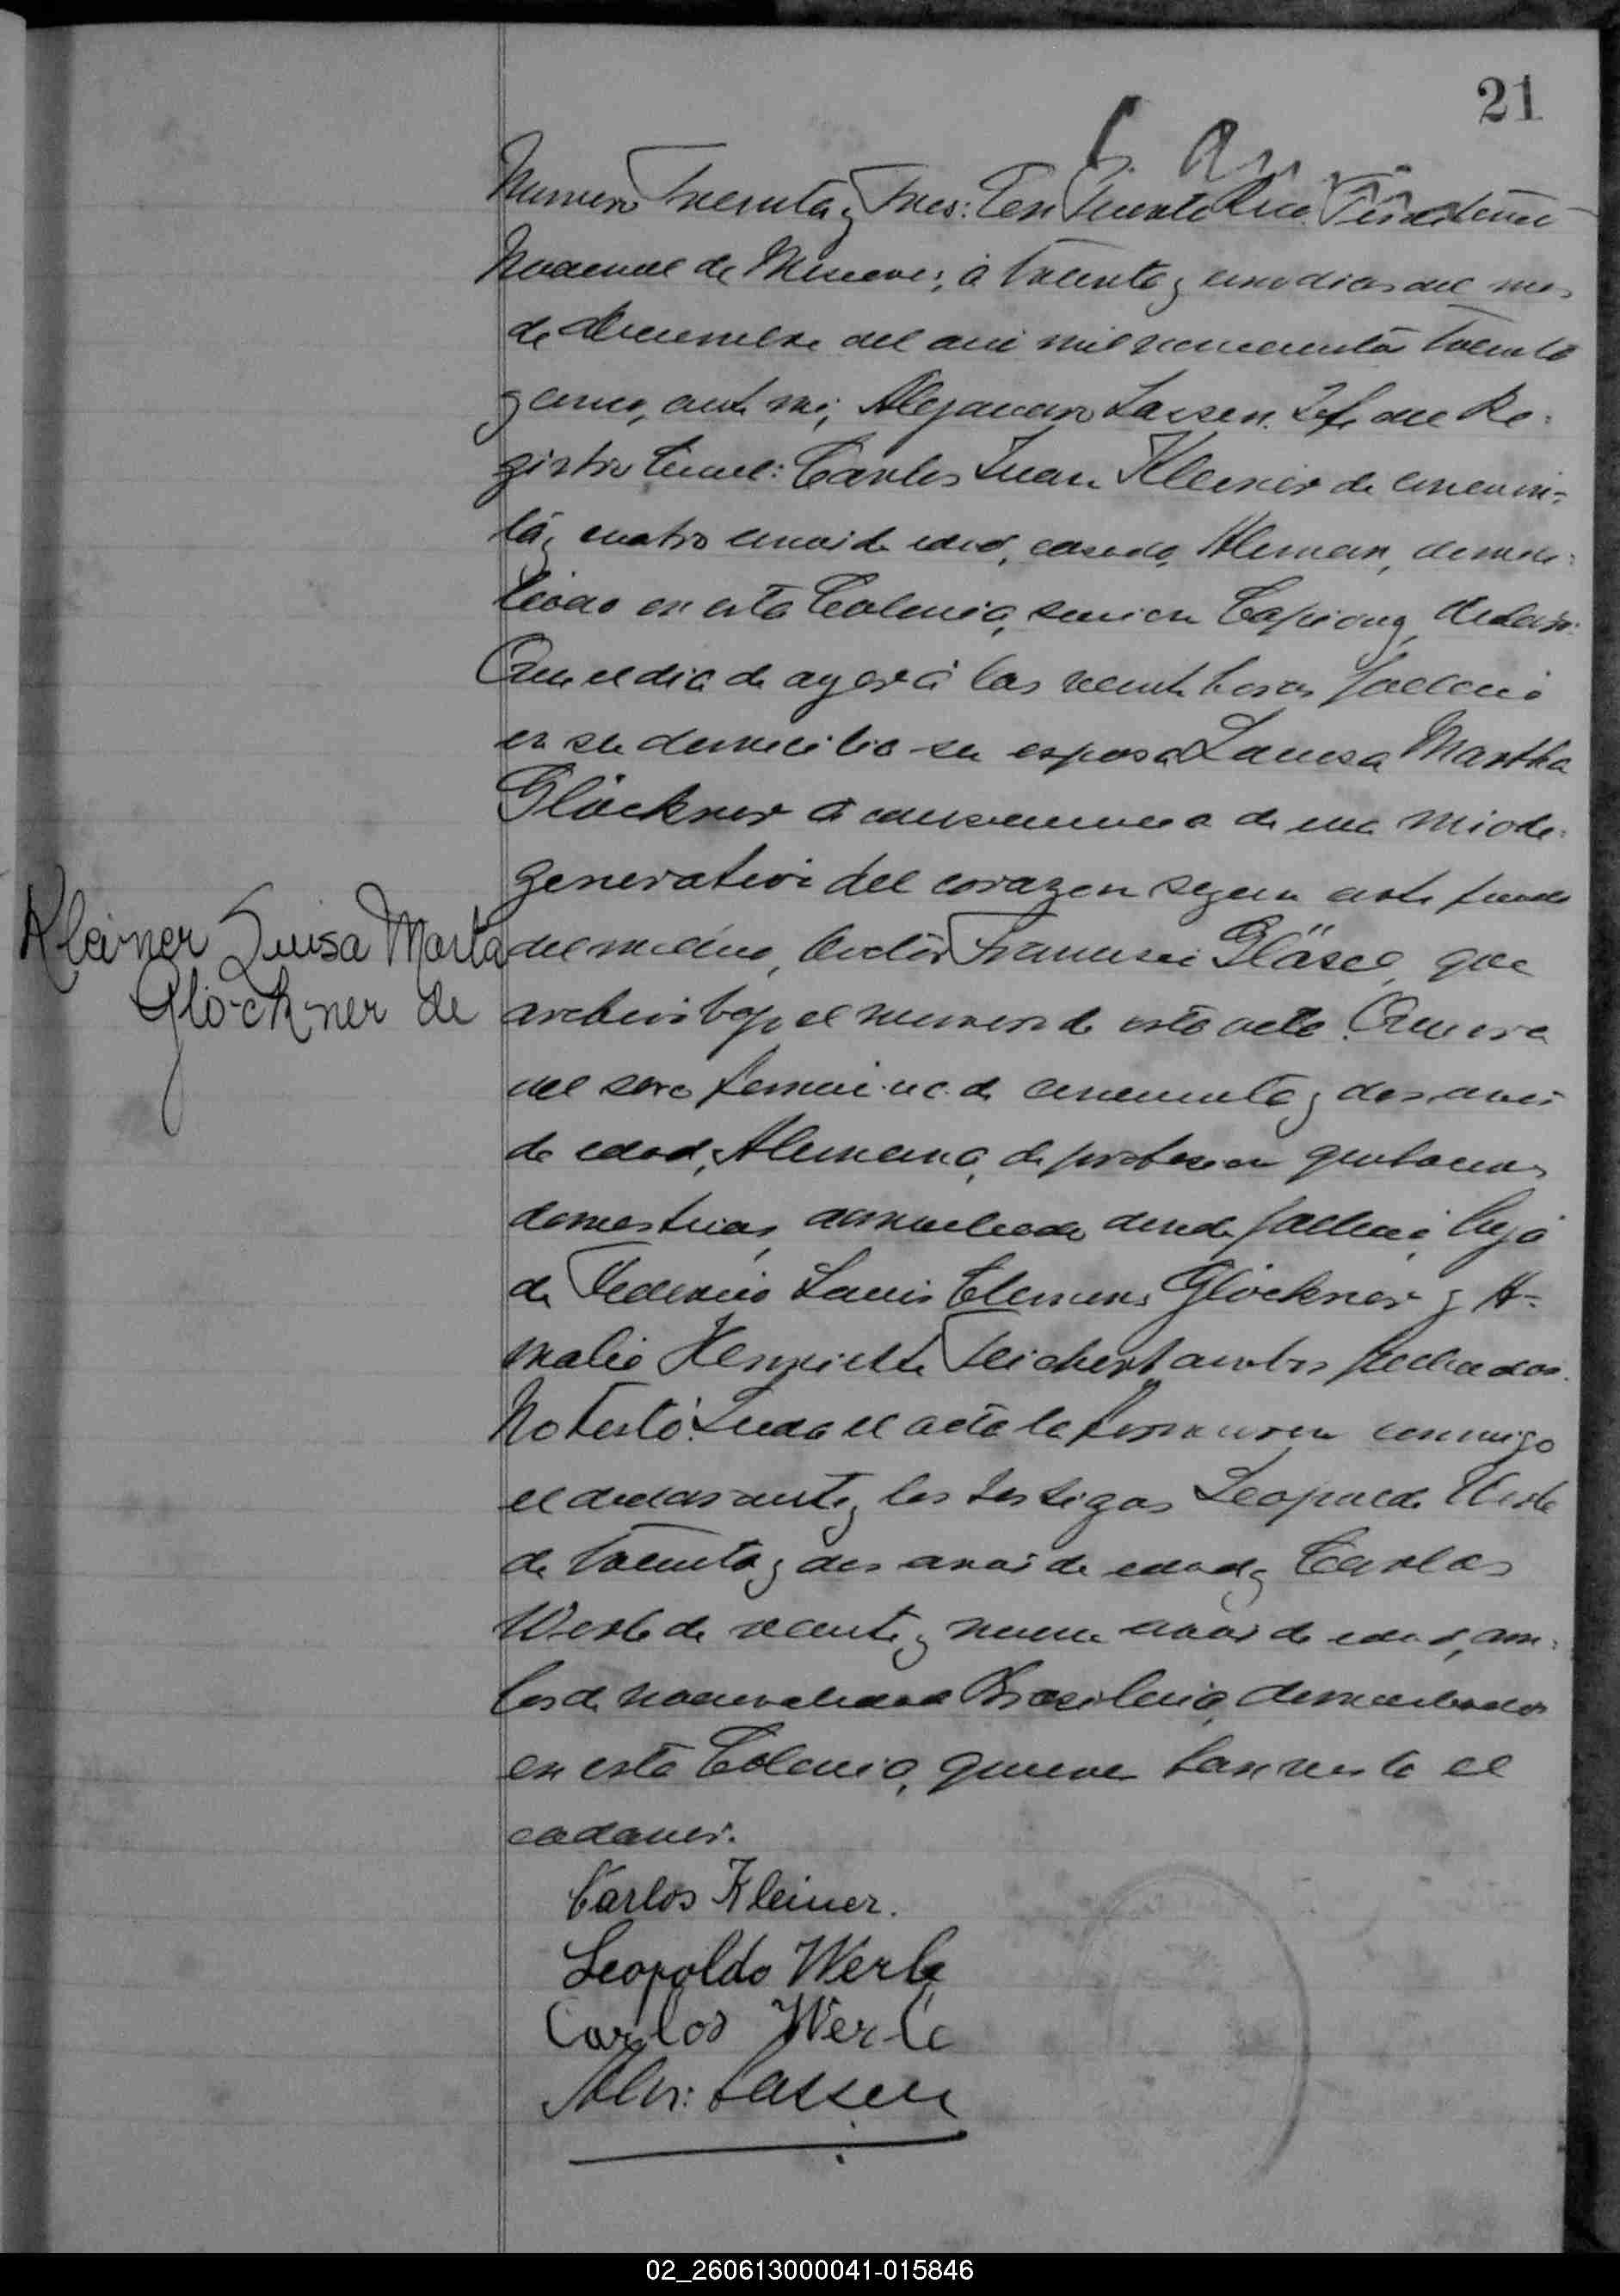 21
Numero Treinta y Tres: En Puerto Rico Territorio
Nacional de Misiones, à treinta y un dias del mes
de Diciembre del año mil novecientos treinta
y cinco, ante mi, Alejandro Lassen, Jefe del Re-
gistro Civil: Carlos Juan Kleiner de cincuen-
ta y cuatro años de edad, casado, Aleman, domici-
liado en esta Colonia, seccion Capiovy, declaró:
Que el dia de ayer á las veinte horas falleció
en su domicilio su esposa Luisa Martha
Glöckner á consecuencia de una miode-
generation del corazon segun certificado
del medico, Doctor Francisco Gläsel, que
archivo bajo el numero de esta acta. Que era
del sexo femenino de cincuenta y dos años
de edad, Alemana, de profesion quehaceres
domesticos, domiciliada donde falleció, hija
de Federico Luis Clemens Glöckner y A-
malia Henriette Teichert ambos fallecidos.
No testó. Leida el acta la firmaron conmigo
el declarante y los testigos Leopoldo Werle
de treinta y dos años de edad y Carlos
Werle de veinte y nueve años de edad, am-
bos de nacionalidad Brasileña, domiciliados
en esta Colonia, quienes han visto el
cadaver.
Kleiner Luisa Marta
Glöckner de
Carlos Kleiner.
Leopoldo Werle
Carlos Werle
Alej: Lassen
02_260613000041-015846